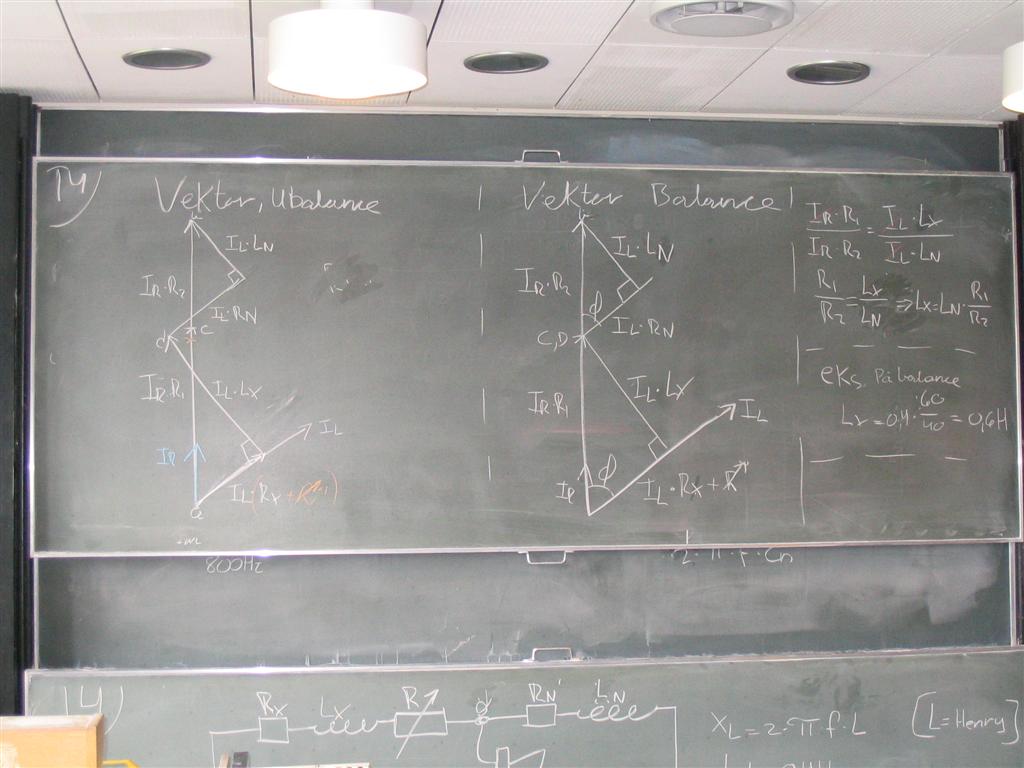 14)
Vektor, Ubalance
b
IL·LN
IR·R2
IL·RN
c
d
IR·R1
IL·LX
IL
IR
IL·(RX+R)
a
Vektor Balance
b
IL·LN
IR·R2
φ
IL·RN
C,D
IL·LX
IR·R1
IL
φ
IR
IL·RX+R
IR·R1 / IR·R2 = IL·LX / IL·LN
R1/R2 = LX/LN ⇒ LX=LN·R1/R2
eks, På balance
LX=0,4·60/40=0,6H
2·π·f·Cn
14)
RX LX R d RN' LN
XL=2·π·f·L [L=Henry]